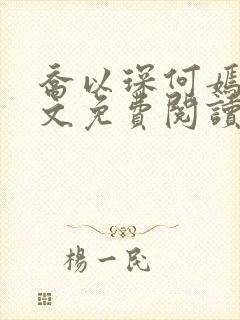 喬以琛何嫣
文免費閱讀
楊一民